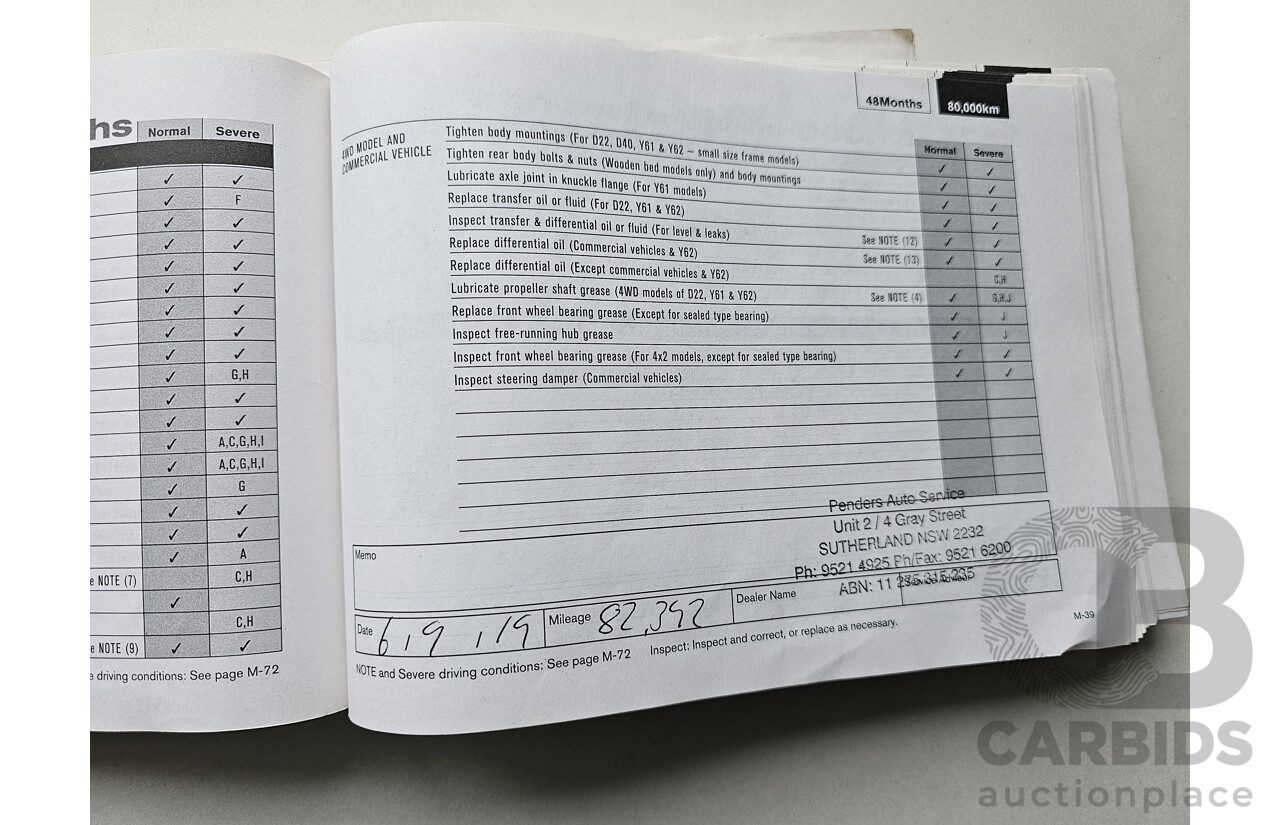 hs Normal Severe
✓ ✓
✓ F
✓ ✓
✓ ✓
✓ ✓
✓ ✓
✓ ✓
✓ ✓
✓ ✓
✓ G,H
✓ ✓
✓ ✓
✓ A,C,G,H,I
✓ A,C,G,H,I
✓ G
✓ ✓
✓ ✓
✓ A
e NOTE (7) C,H
✓
C,H
e NOTE (9) ✓ ✓
e driving conditions: See page M-72
48Months 80,000km
4WD MODEL AND
COMMERCIAL VEHICLE
Normal Severe
Tighten body mountings (For D22, D40, Y61 & Y62 – small size frame models) ✓ ✓
Tighten rear body bolts & nuts (Wooden bed models only) and body mountings ✓ ✓
Lubricate axle joint in knuckle flange (For Y61 models) ✓ ✓
Replace transfer oil or fluid (For D22, Y61 & Y62) ✓ ✓
Inspect transfer & differential oil or fluid (For level & leaks) See NOTE (12) ✓ ✓
Replace differential oil (Commercial vehicles & Y62) See NOTE (13) ✓ ✓
Replace differential oil (Except commercial vehicles & Y62) C,H
Lubricate propeller shaft grease (4WD models of D22, Y61 & Y62) See NOTE (4) ✓ G,H,J
Replace front wheel bearing grease (Except for sealed type bearing) ✓ J
Inspect free-running hub grease ✓ J
Inspect front wheel bearing grease (For 4x2 models, except for sealed type bearing) ✓ ✓
Inspect steering damper (Commercial vehicles) ✓ ✓
Memo
Penders Auto Service
Unit 2 / 4 Gray Street
SUTHERLAND NSW 2232
Ph: 9521 4925 Ph/Fax: 9521 6200
ABN: 11
Date 6/9/19 Mileage 82,392 Dealer Name
NOTE and Severe driving conditions: See page M-72 Inspect: Inspect and correct, or replace as necessary.
M-39
CB
CARBIDS
auctionplace